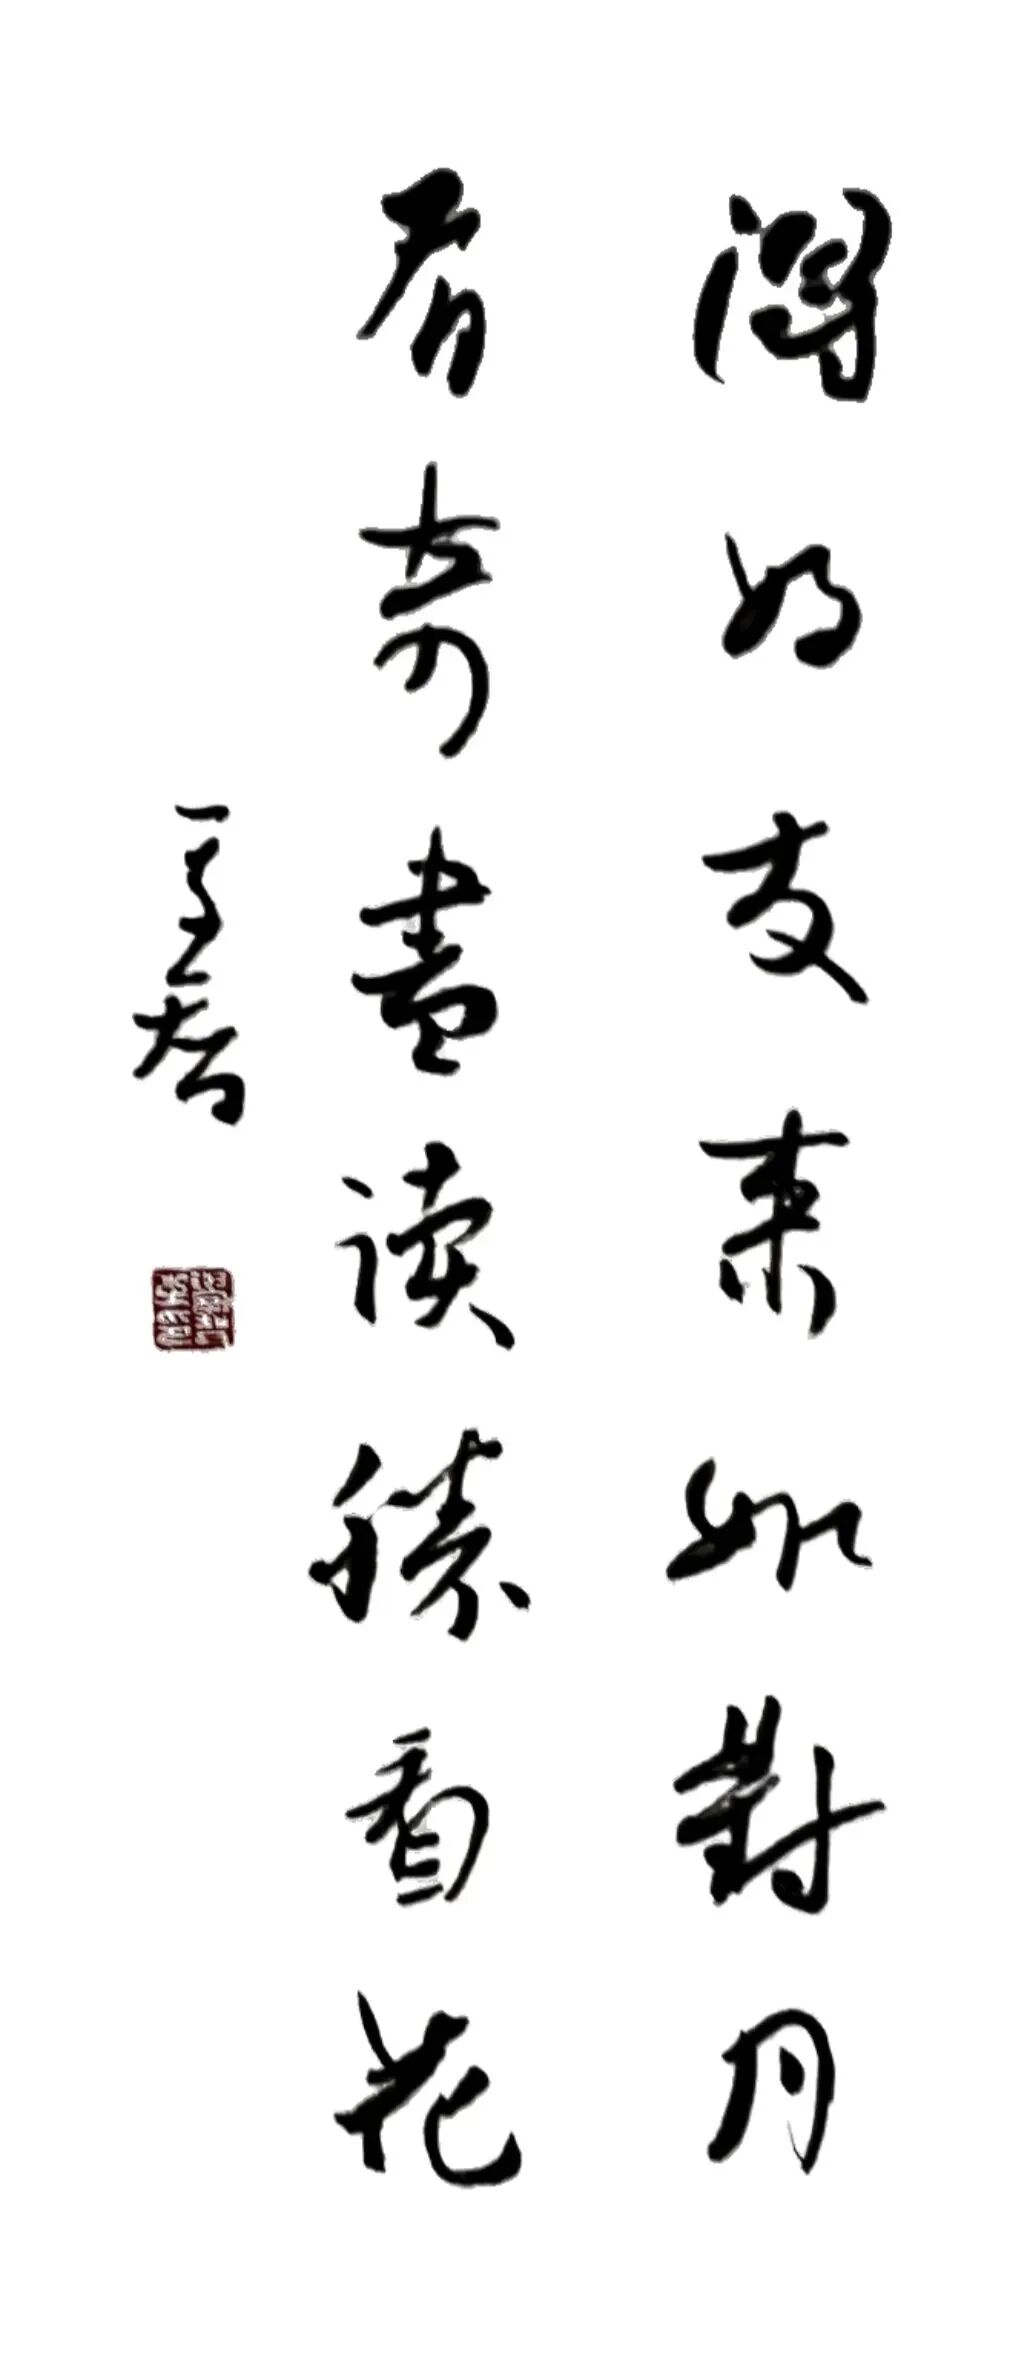 得好友来如對月
有奇書读勝看花